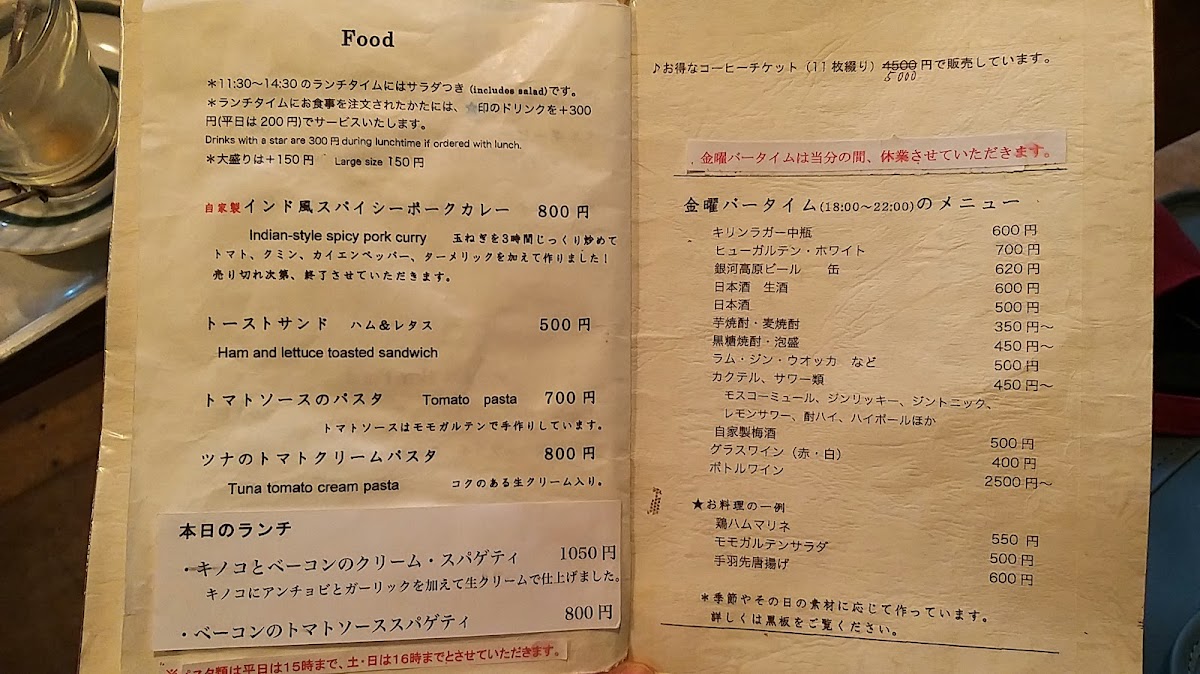 Food
＊11:30～14:30 のランチタイムにはサラダつき (includes salad)です。
＊ランチタイムにお食事を注文されたかたには、★印のドリンクを＋300
円(平日は 200 円)でサービスいたします。
Drinks with a star are 300 円 during lunchtime if ordered with lunch.
＊大盛りは＋150 円　Large size 150 円
自家製インド風スパイシーポークカレー　800 円
Indian-style spicy pork curry　玉ねぎを3時間じっくり炒めて
トマト、クミン、カイエンペッパー、ターメリックを加えて作りました！
売り切れ次第、終了させていただきます。
トーストサンド　ハム＆レタス　500 円
Ham and lettuce toasted sandwich
トマトソースのパスタ　Tomato pasta　700 円
トマトソースはモモガルテンで手作りしています。
ツナのトマトクリームパスタ　800 円
Tuna tomato cream pasta　コクのある生クリーム入り。
本日のランチ
・キノコとベーコンのクリーム・スパゲティ　1050 円
キノコにアンチョビとガーリックを加えて生クリームで仕上げました。
800 円
・ベーコンのトマトソーススパゲティ
※パスタ類は平日は15時まで、土・日は16時までとさせていただきます。
♪お得なコーヒーチケット（11 枚綴り）4500 円で販売しています。
5000
金曜バータイムは当分の間、休業させていただきます。
金曜バータイム(18:00～22:00)のメニュー
キリンラガー中瓶　600 円
ヒューガルテン・ホワイト　700 円
銀河高原ビール　缶　620 円
日本酒　生酒　600 円
日本酒　500 円
芋焼酎・麦焼酎　350 円～
黒糖焼酎・泡盛　450 円～
ラム・ジン・ウオッカ　など　500 円
カクテル、サワー類　450 円～
モスコーミュール、ジンリッキー、ジントニック、
レモンサワー、酎ハイ、ハイボールほか
自家製梅酒　500 円
グラスワイン（赤・白）　400 円
ボトルワイン　2500 円～
★お料理の一例
鶏ハムマリネ　550 円
モモガルテンサラダ　500 円
手羽先唐揚げ　600 円
＊季節やその日の素材に応じて作っています。
詳しくは黒板をご覧ください。